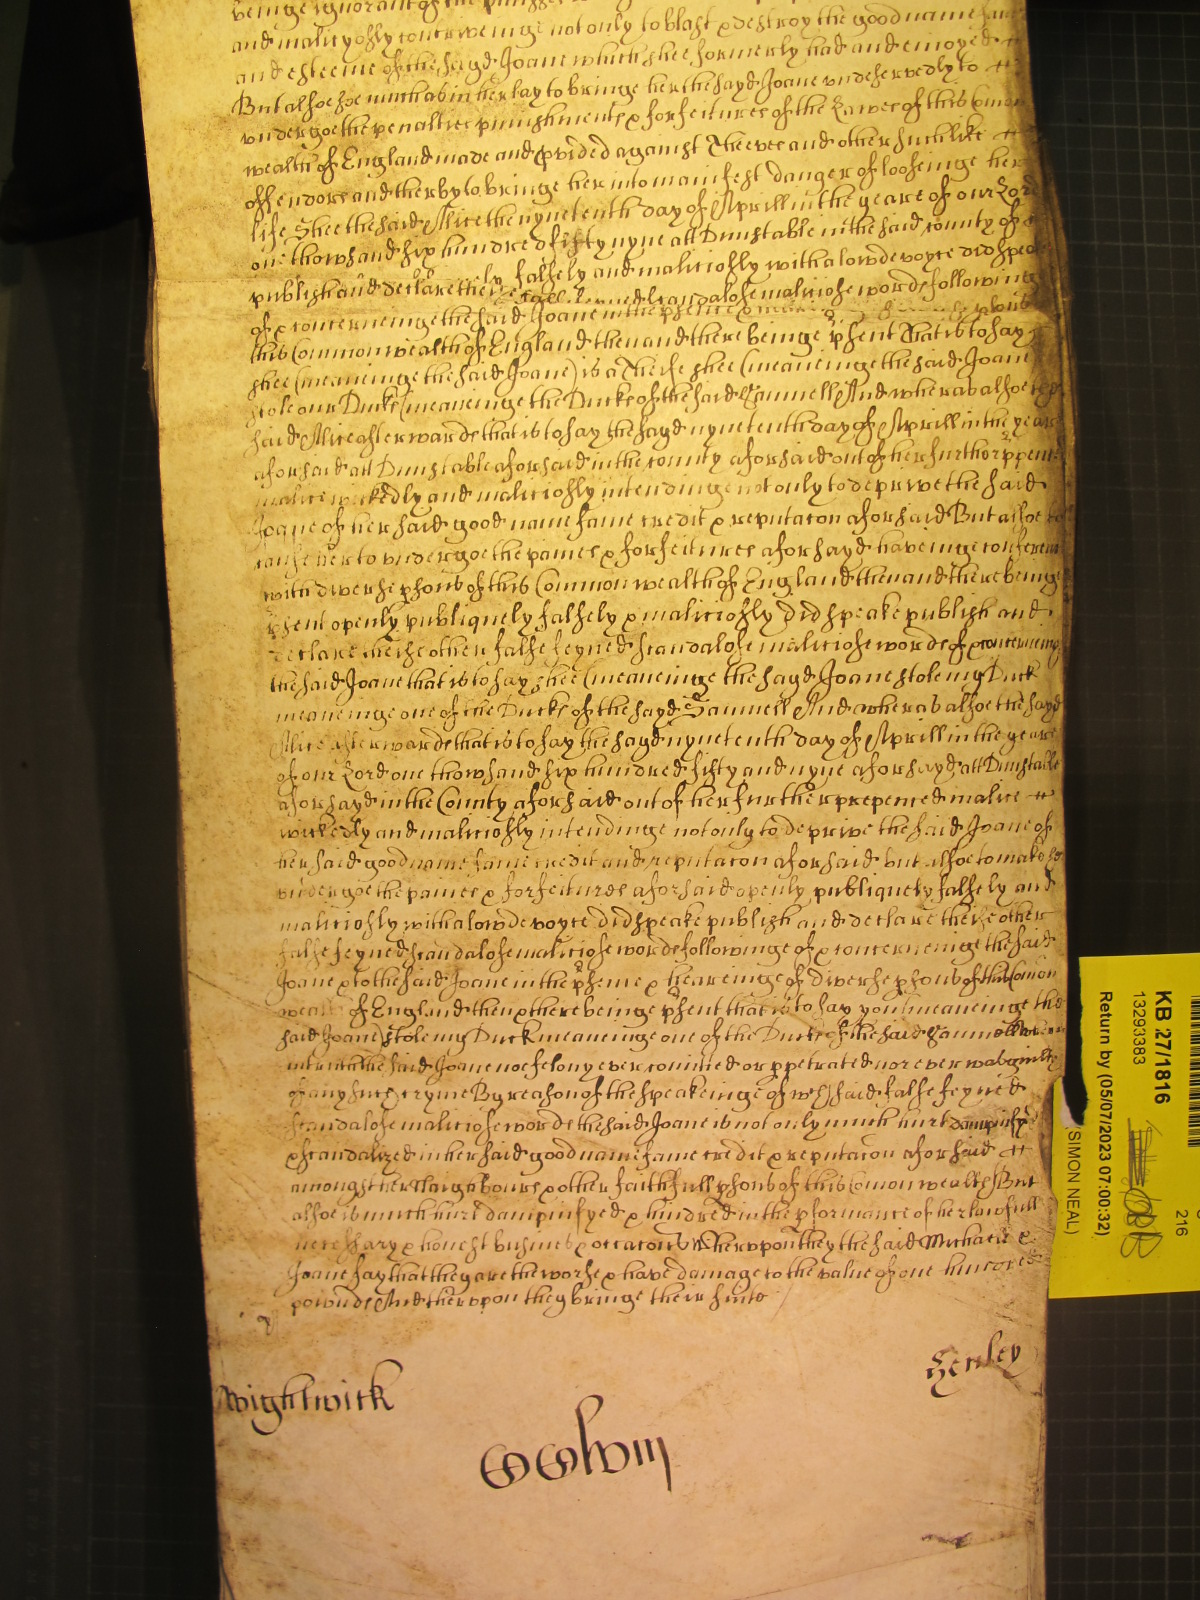 beinge ignorant of the
and malityosly contriveinge not only to blast & destroy the good name fame
and esteeme of the sayd Joane which shee formerly had and enioyed
But alsoe soe much as in her lay to bringe her the sayd Joane undeservedly to
undergoe the penalties punishments & forfeitures of the Lawes of this Comon
wealth of England made and pvided against Theeves and other such like
offendors and therby to bringe her into manifest danger of looseinge her
life Shee the said Alice the nynetenth day of Aprill in the yeare of our Lord
one thowsand six hundred fifty nyne att Dunstable in the said county of
publish and declare theise falsely and malitiosly with a lowde voyce did speake
of & concerneinge the said Joane in the psence scandalose malitiose words followinge
this Commonwealth of England then and there beinge psent That is to say
shee (meaneinge the said Joane) is a Theife shee (meaneinge the said Joane
stole our Ducks (meaneinge the Ducks of the said Samuell And wheras alsoe the
said Alice afterwards that is to say the sayd nynetenth day of Aprill in the yeare
aforsaid att Dunstable aforsaid in the county aforsaid out of her further ppenced
malice wickedly and malitiosly intendinge not only to deprive the said
Joane of her said good name fame credit & reputacon aforsaid But alsoe to
cause her to undergoe the paines & forfeitures aforsayd haveinge conference
with diverse psons of this Common wealth of England then and there beinge
psent openly publiquely falsely & malitiosly did speake publish and
declare theise other false feyned scandalose malitiose words of & concerneing
the said Joane that is to say shee (meaneinge the sayd Joane stole my Duck
meaneinge one of the Ducks of the sayd Samuell And wheras alsoe the sayd
Alice afterwards that is to say the sayd nynetenth day of Aprill in the yeare
of our Lord one thowsand six hundred fifty and nyne aforsayd att Dunstable
aforsayd in the County aforsaid out of her further prepenced malice
wickedly and malitiosly intendinge not only to deprive the said Joane of
her said good name fame credit and reputacon aforsaid but alsoe to make her
undergoe the paines & forfeitures aforsaid openly publiquely falsely and
malitiosly with a lowde voyce did speake publish and declare theise other
false feyned scandalose malitiose words followinge of & concerneinge the said
Joane & to the said Joane in the psence & heareinge of diverse psons of this Comon
wealth of England then & there beinge psent that is to say you (meaneinge the
said Joane) stole my Duck meaneinge one of the Ducks of the said Samuell
in truth the said Joane noe felony ever comitted or ppetrated nor ever was guilty
of any such cryme By reason of the speakeinge of wch said false feyned
scandalose malitiose words the said Joane is not only much hurt dampnifyed
& scandalized in her said good name fame credit & reputacon aforsaid
amongst her Naighbours & other faithfull psons of this Comonwealth But
alsoe is much hurt dampnifyed & hindred in the pformance of her lawfull
necessary & honest busines & occacons Wherupon they the said Michaell &
Joane say that they are the worse & have damage to the value of one hundred
pownds And therupon they bringe their suite
Wightwick
Henley
KB 27/1816
13293383
Return by (05/07/2023 07:00:32)
(SIMON NEAL)
216